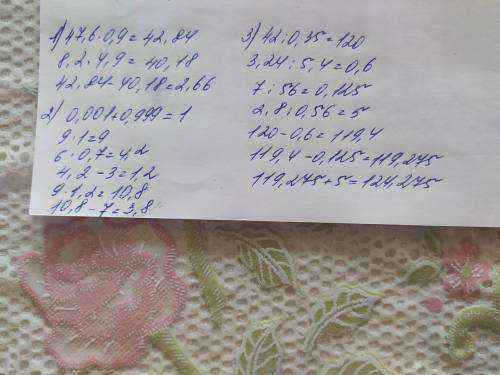 1) 47,6·0,9=42,84
8,2·4,9=40,18
42,84-40,18=2,66
2) 0,001+0,999=1
9·1=9
6·0,7=4,2
4,2-3=1,2
9·1,2=10,8
10,8-7=3,8
3) 42:0,35=120
3,24:5,4=0,6
7:56=0,125
2,8:0,56=5
120-0,6=119,4
119,4-0,125=119,275
119,275+5=124,275